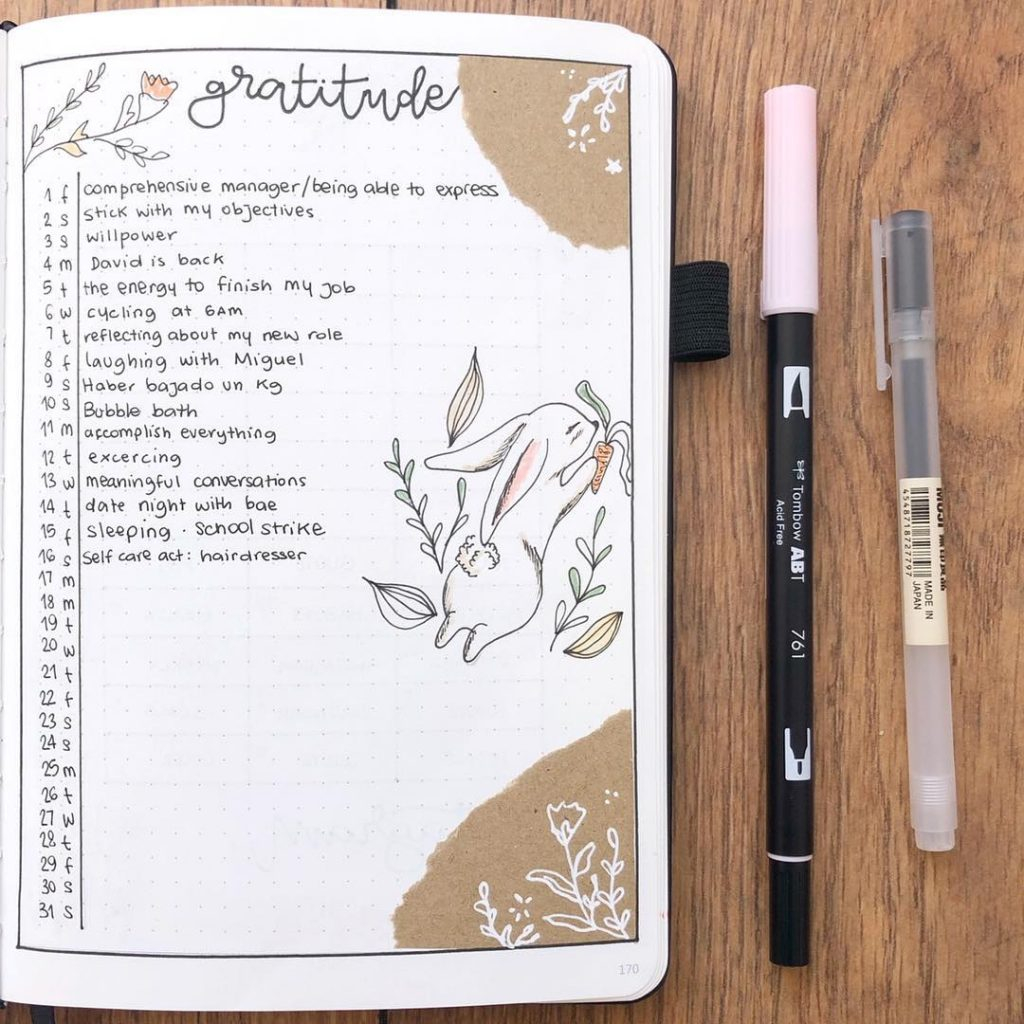 gratitude
1 f comprehensive manager/being able to express
2 s stick with my objectives
3 s willpower
4 m David is back
5 t the energy to finish my job
6 w cycling at 6AM
7 t reflecting about my new role
8 f laughing with Miguel
9 s Haber bajado un Kg
10 s Bubble bath
11 m accomplish everything
12 t excercing
13 w meaningful conversations
14 t date night with bae
15 f sleeping · School strike
16 s Self care act: hairdresser
17 m
18 m
19 t
20 w
21 t
22 f
23 s
24 s
25 m
26 t
27 W
28 t
29 f
30 s
31 s
170
Tombow ABT 761
Acid Free
4548718727797
MADE IN
JAPAN